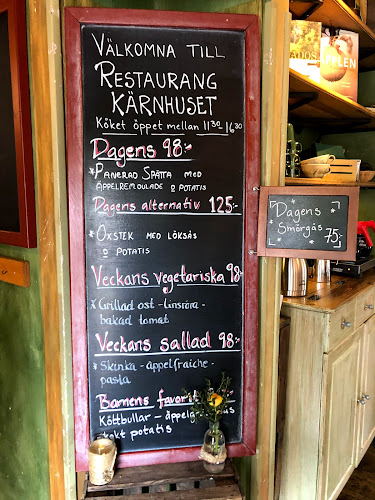 VÄLKOMNA TILL
RESTAURANG
KÄRNHUSET
Köket öppet mellan 11 30 16 30
Dagens 98:-
* PANERAD SPÄTTA MED
ÄPPELREMOULADE O POTATIS
Dagens alternativ 125:-
* OXSTEK MED LÖKSÅS
O POTATIS
Veckans vegetariska 98:-
* Grillad ost - linsröra -
bakad tomat
Veckans sallad 98:-
* Skinka - äppelfraiche -
pasta
Barnens favorit
Köttbullar -
potatis
Dagens
Smörgås
75:-